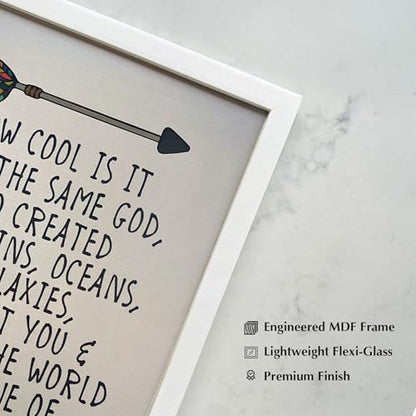 W COOL IS IT
THE SAME GOD,
CREATED
INS, OCEANS,
LAXIES,
T YOU &
HE WORLD
E OF
Engineered MDF Frame
Lightweight Flexi-Glass
Premium Finish